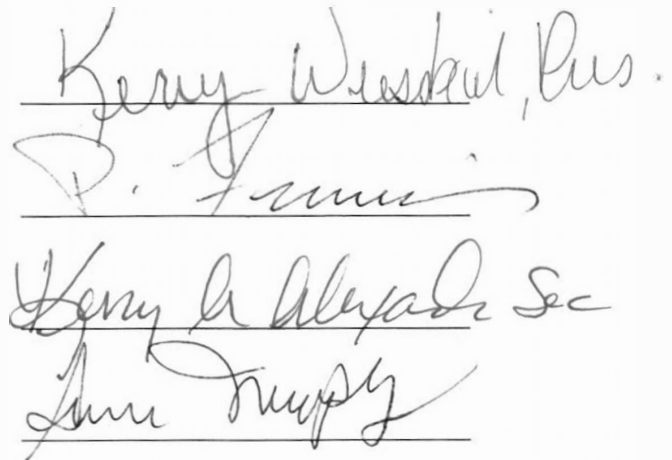 Kerry Wiesdeil, Pres.
P. Francis
Kerry A Alexander Sec
Murphy